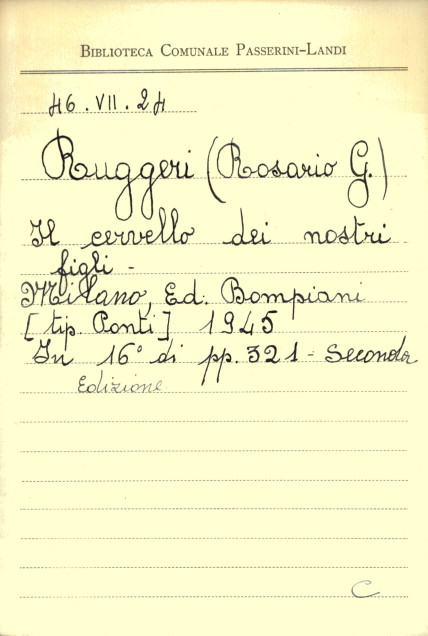 BIBLIOTECA COMUNALE PASSERINI-LANDI
46.VII.24
Ruggeri (Rosario G.)
Il cervello dei nostri
figli -
Milano, Ed. Bompiani
[tip. Ponti] 1945
In 16° di pp. 321 - Seconda
Edizione
C